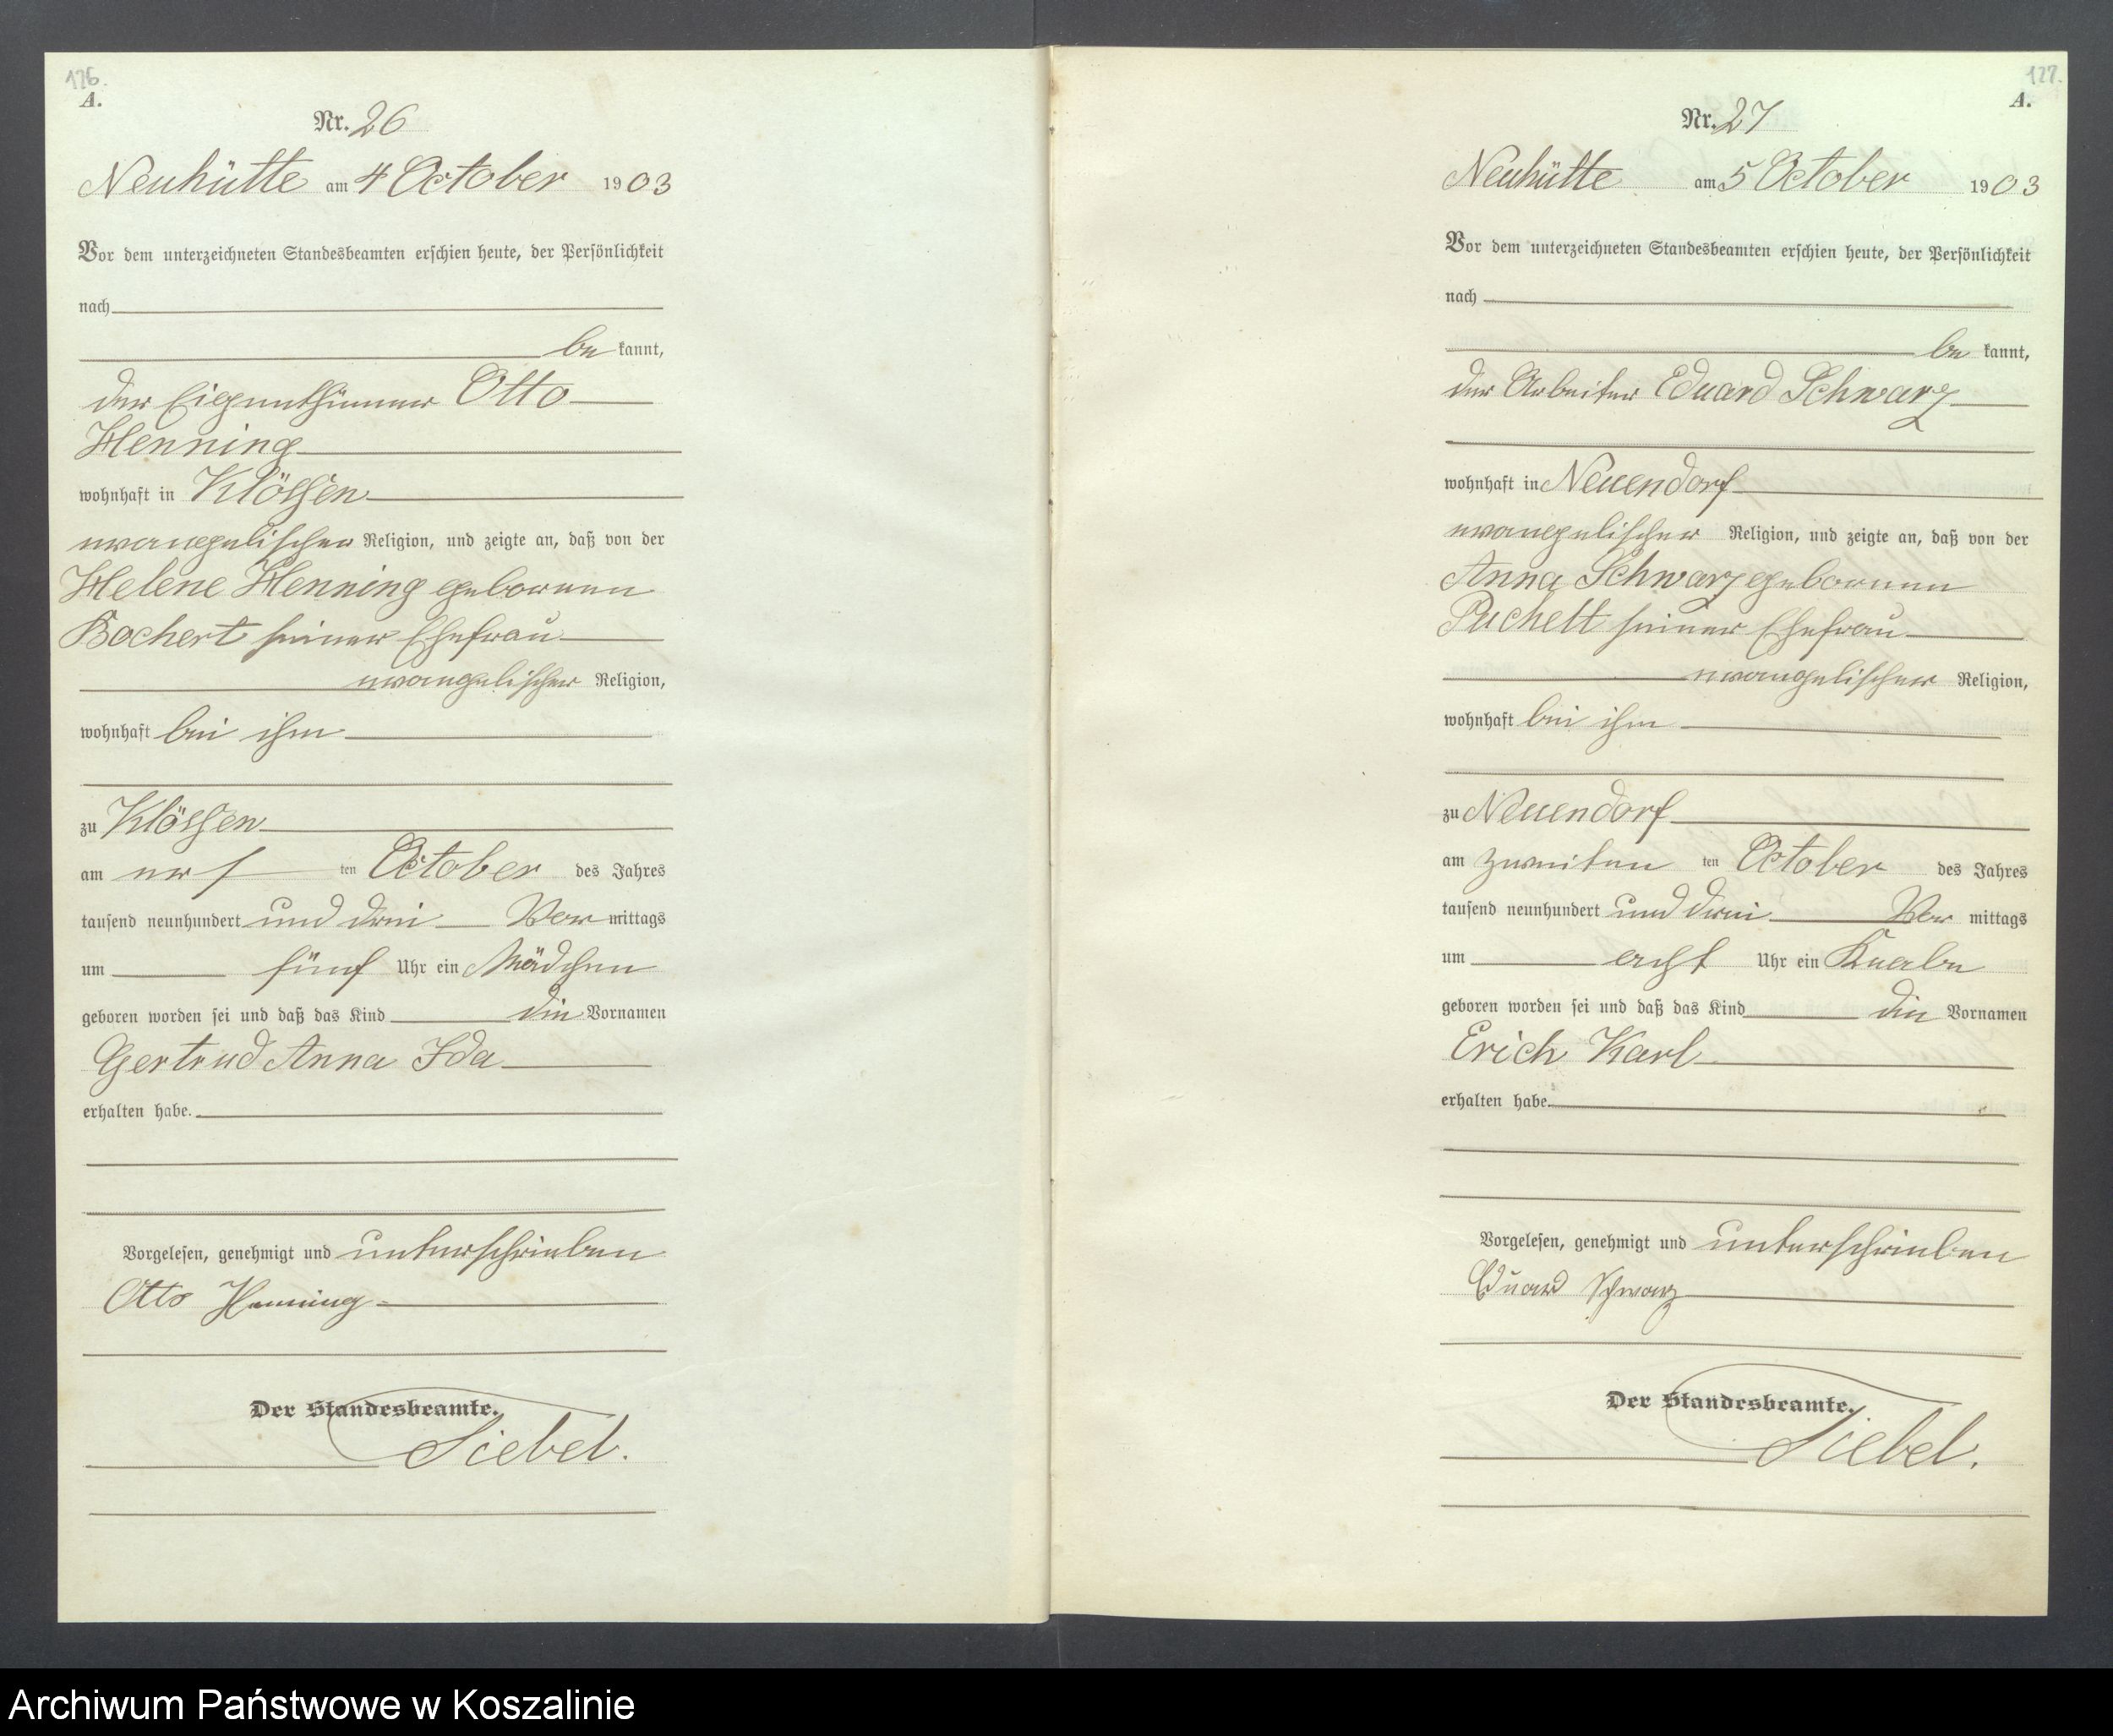 126.
A.
Nr. 26
Neuhütte am 4 October 1903
Vor dem unterzeichneten Standesbeamten erschien heute, der Persönlichkeit
nach
be kannt,
der Eigenthümer Otto
Henning
wohnhaft in Klössen
evangelischer Religion, und zeigte an, daß von der
Helene Henning geborenen
Bochert seiner Ehefrau
evangelischer Religion,
wohnhaft bei ihm
zu Klössen
am ten October des Jahres
tausend neunhundert und drei Vor mittags
um fünf Uhr ein Mädchen
geboren worden sei und daß das Kind die Vornamen
Gertrud Anna Ida
erhalten habe.
Vorgelesen, genehmigt und unterschrieben
Otto Henning
Der Standesbeamte.
Siebel.
127.
A.
Nr. 27
Neuhütte am 5 October 1903
Vor dem unterzeichneten Standesbeamten erschien heute, der Persönlichkeit
nach
be kannt,
der Arbeiter Eduard Schwarz
wohnhaft in Neuendorf
evangelischer Religion, und zeigte an, daß von der
Anna Schwarz geborenen
Puchelt seiner Ehefrau
evangelischer Religion,
wohnhaft bei ihm
zu Neuendorf
am zweiten ten October des Jahres
tausend neunhundert und drei Vor mittags
um acht Uhr ein Knabe
geboren worden sei und daß das Kind die Vornamen
Erich Karl
erhalten habe.
Vorgelesen, genehmigt und unterschrieben
Eduard Schwarz
Der Standesbeamte.
Siebel.
Archiwum Państwowe w Koszalinie